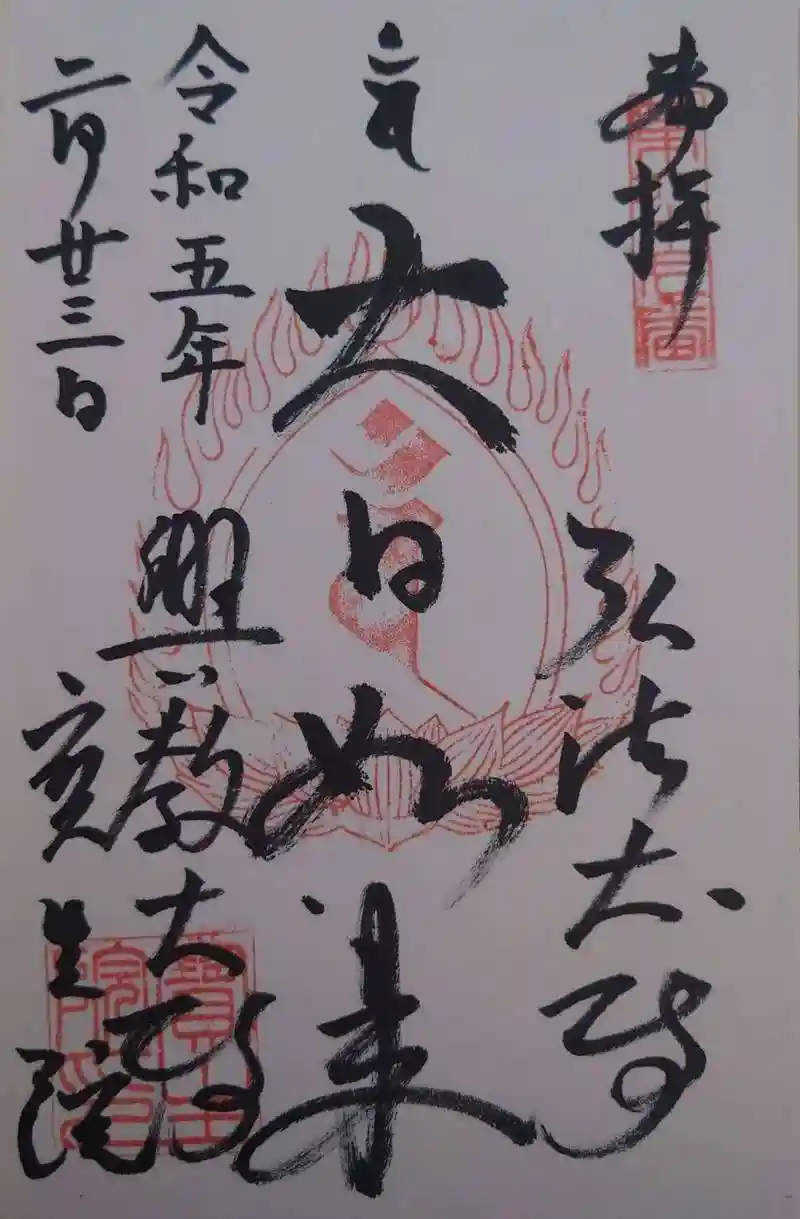 奉拝
弘法大師
大日如来
興教大師
令和五年
二月廿三日
宝生院